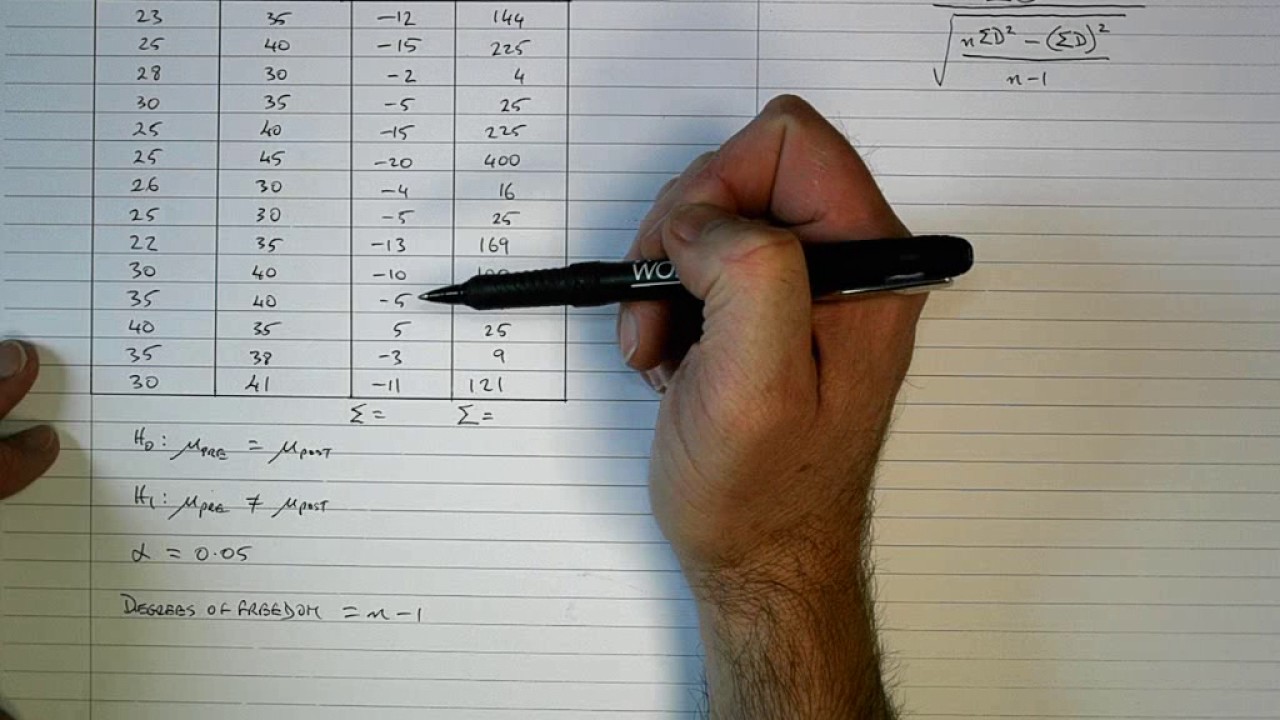 23 35 −12 144
25 40 −15 225
28 30 −2 4
30 35 −5 25
25 40 −15 225
25 45 −20 400
26 30 −4 16
25 30 −5 25
22 35 −13 169
30 40 −10
35 40 −5
40 35 5 25
35 38 −3 9
30 41 −11 121
Σ = Σ =
H₀ : μPRE = μPOST
H₁ : μPRE ≠ μPOST
α = 0.05
DEGREES OF FREEDOM = n − 1
√
nΣD² − (ΣD)²
n − 1
WO